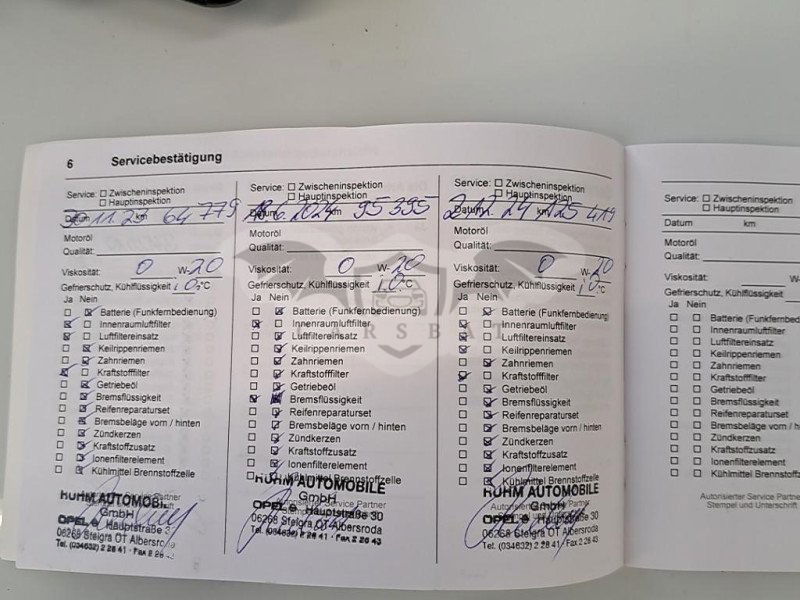 6 Servicebestätigung
Service: ☐ Zwischeninspektion
☐ Hauptinspektion
Datum 30.11.23 km 64 779
Motoröl
Qualität:
Viskosität: 0 W-20
Gefrierschutz, Kühlflüssigkeit i.O. °C
Ja Nein
Batterie (Funkfernbedienung)
Innenraumluftfilter
Luftfiltereinsatz
Keilrippenriemen
Zahnriemen
Kraftstofffilter
Getriebeöl
Bremsflüssigkeit
Reifenreparaturset
Bremsbeläge vorn / hinten
Zündkerzen
Kraftstoffzusatz
Ionenfilterelement
Kühlmittel Brennstoffzelle
RUHM AUTOMOBILE
GmbH
OPEL Hauptstraße 30
06268 Steigra OT Albersroda
Tel. (034632) 2 28 41 · Fax 2 28
Service: ☐ Zwischeninspektion
☐ Hauptinspektion
Datum 6.2024 km 95 395
Motoröl
Qualität:
Viskosität: 0 W-20
Gefrierschutz, Kühlflüssigkeit i.O. °C
Ja Nein
Batterie (Funkfernbedienung)
Innenraumluftfilter
Luftfiltereinsatz
Keilrippenriemen
Zahnriemen
Kraftstofffilter
Getriebeöl
Bremsflüssigkeit
Reifenreparaturset
Bremsbeläge vorn / hinten
Zündkerzen
Kraftstoffzusatz
Ionenfilterelement
Kühlmittel Brennstoffzelle
RUHM AUTOMOBILE
GmbH
OPEL Hauptstraße 30
06268 Steigra OT Albersroda
Tel. (034632) 2 28 41 · Fax 2 28 43
Service: ☐ Zwischeninspektion
☐ Hauptinspektion
Datum 2.12.24 km 125 419
Motoröl
Qualität:
Viskosität: 0 W-20
Gefrierschutz, Kühlflüssigkeit i.O. °C
Ja Nein
Batterie (Funkfernbedienung)
Innenraumluftfilter
Luftfiltereinsatz
Keilrippenriemen
Zahnriemen
Kraftstofffilter
Getriebeöl
Bremsflüssigkeit
Reifenreparaturset
Bremsbeläge vorn / hinten
Zündkerzen
Kraftstoffzusatz
Ionenfilterelement
Kühlmittel Brennstoffzelle
RUHM AUTOMOBILE
GmbH
OPEL Hauptstraße 30
06268 Steigra OT Albersroda
Tel. (034632) 2 28 41 · Fax 2 28 43
Service: ☐ Zwischeninspektion
☐ Hauptinspektion
Datum km
Motoröl
Qualität:
Viskosität: W-
Gefrierschutz, Kühlflüssigkeit
Ja Nein
Batterie (Funkfernbed
Innenraumluftfilter
Luftfiltereinsatz
Keilrippenriemen
Zahnriemen
Kraftstofffilter
Getriebeöl
Bremsflüssigkeit
Reifenreparaturset
Bremsbeläge vorn / h
Zündkerzen
Kraftstoffzusatz
Ionenfilterelement
Kühlmittel Brennstoffz
Autorisierter Service Partner
Stempel und Unterschrift